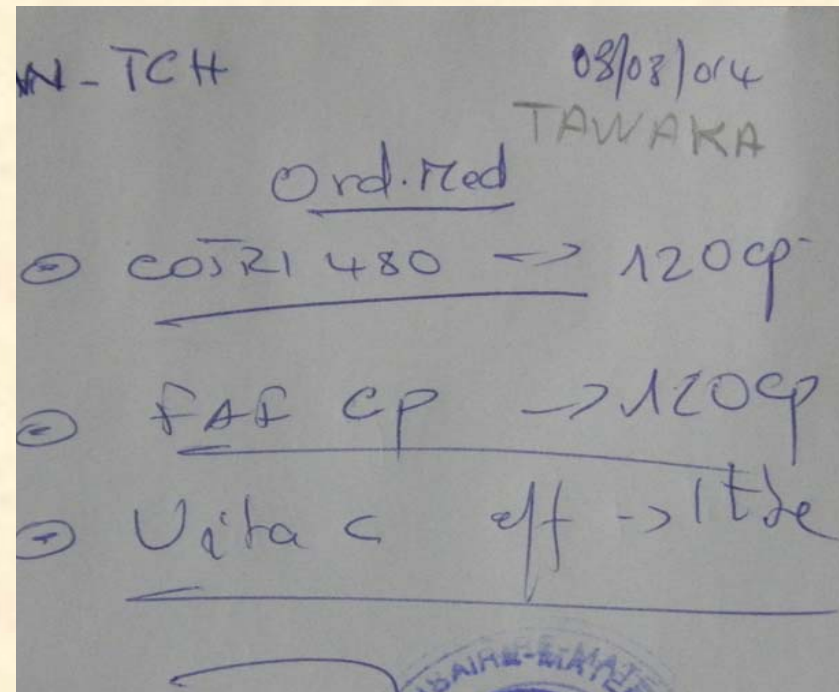 N-TCH 08/08/014
TAWAKA
Ord.Med
COTRI 480 -> 120cp
FAF CP -> 120cp
Vita C eff -> 1 tbe